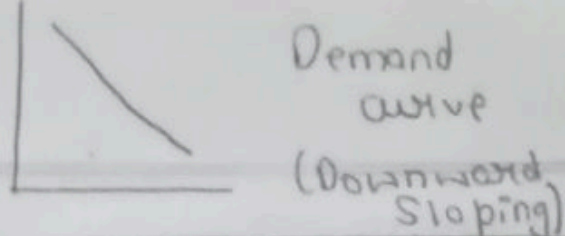 Demand
curve
(Downward
Sloping)